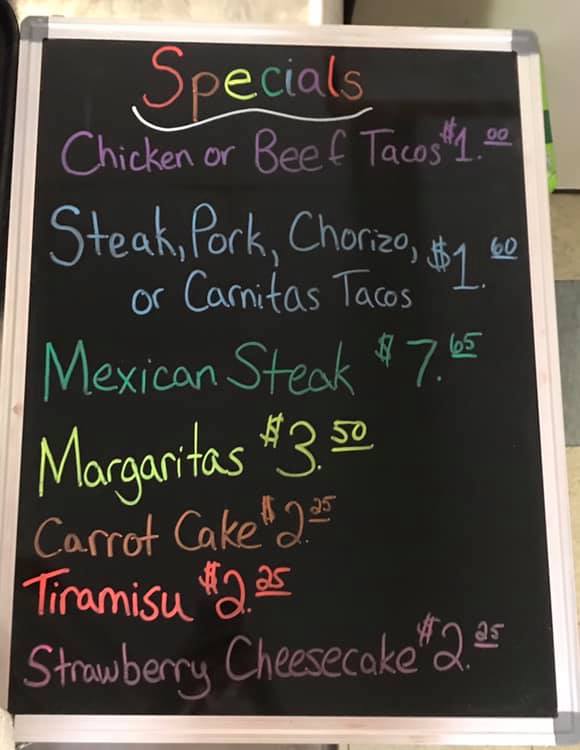 Specials
Chicken or Beef Tacos $1.00
Steak, Pork, Chorizo, $1.60
or Carnitas Tacos
Mexican Steak $7.65
Margaritas $3.50
Carrot Cake $2.25
Tiramisu $2.25
Strawberry Cheesecake $2.25